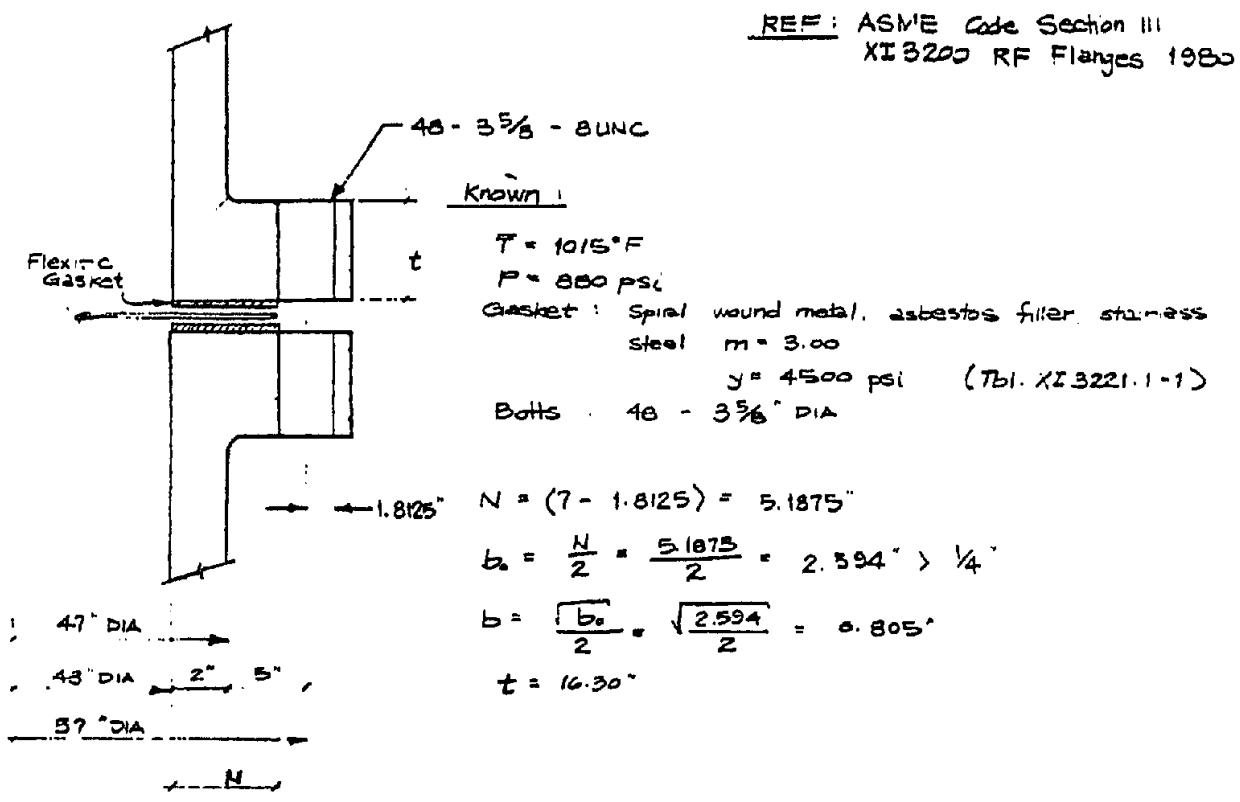 REF: ASME Code Section III
XI 3200 RF Flanges 1980
48 - 3 5/8 - 8UNC
Known:
T = 1015°F
P = 880 psi
t
Gasket
Gasket : Spiral wound metal, asbestos filler
steel m = 3.00
y = 4500 psi (Tbl. XI 3221.1-1)
Bolts 48 - 3 5/8" DIA
1.8125"
N = (7 - 1.8125) = 5.1875"
b₀ = N/2 = 5.1875/2 = 2.594" > 1/4"
b = √b₀/2 = √2.594/2 = 0.805"
t = 16.30"
47" DIA
43" DIA 2" 5"
57" DIA
N